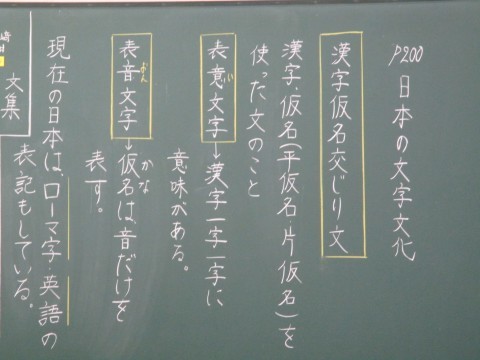 P200 日本の文字文化
漢字仮名交じり文
漢字・仮名(平仮名・片仮名)を
使った文のこと
表意文字→漢字一字一字に
い
意味がある。
表音文字→仮名は、音だけを
おん
かな
表す。
現在の日本は、ローマ字・英語の
表記もしている。
文集